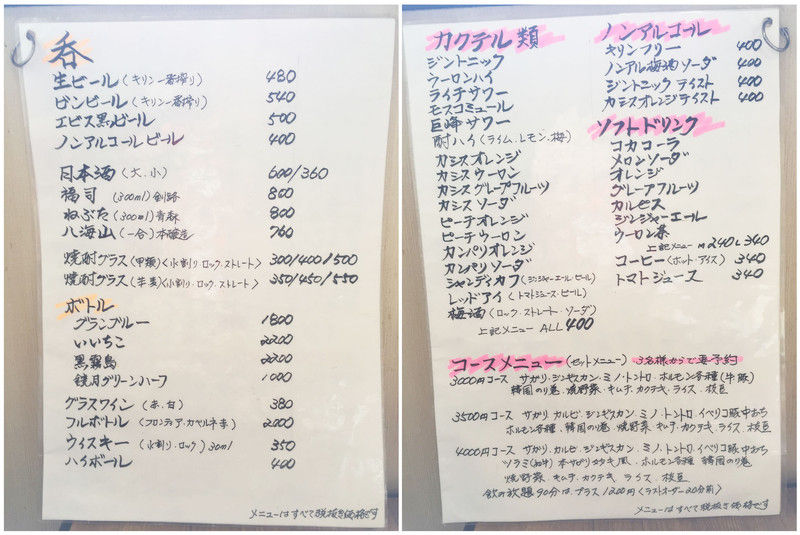 呑
生ビール(キリン一番搾り) 480
ビンビール(キリン一番搾り) 540
エビス黒ビール 500
ノンアルコールビール 400
日本酒(大、小) 600/360
福司(300ml)釧路 800
ねぶた(300ml)青森 800
八海山(一合)本醸造 760
焼酎グラス(甲類)<水割り・ロック・ストレート> 300/400/500
焼酎グラス(芋・麦)<水割り・ロック・ストレート> 350/450/550
ボトル
グランブルー 1800
いいちこ 2200
黒霧島 2200
鏡月グリーンハーフ 1000
グラスワイン(赤、白) 380
フルボトル(フロンティア・カベルネ赤) 2000
ウィスキー(水割り・ロック)30ml 350
ハイボール 400
メニューはすべて税抜き価格です
カクテル類
ジントニック
ウーロンハイ
ライチサワー
モスコミュール
巨峰サワー
酎ハイ(ライム、レモン、梅)
カシスオレンジ
カシスウーロン
カシスグレープフルーツ
カシスソーダ
ピーチオレンジ
ピーチウーロン
カンパリオレンジ
カンパリソーダ
シャンディガフ(ジンジャーエール・ビール)
レッドアイ(トマトジュース・ビール)
梅酒(ロック・ストレート・ソーダ)
上記メニュー ALL 400
ノンアルコール
キリンフリー 400
ノンアル梅酒ソーダ 400
ジントニックテイスト 400
カシスオレンジテイスト 400
ソフトドリンク
コカコーラ
メロンソーダ
オレンジ
グレープフルーツ
カルピス
ジンジャーエール
ウーロン茶
上記メニュー M240 L340
コーヒー(ホット・アイス) 340
トマトジュース 340
コースメニュー(セットメニュー) 3名様からで要予約
3000円コース サガリ・ジンギスカン・ミノ・トントロ・ホルモン各種(牛豚)
韓国のり巻、焼野菜・キムチ、カクテキ、ライス、枝豆
3500円コース サガリ、カルビ、ジンギスカン、ミノ、トントロ、イベリコ豚中おち
ホルモン各種、韓国のり巻、焼野菜、キムチ、カクテキ、ライス、枝豆
4000円コース サガリ、カルビ、ジンギスカン、ミノ、トントロ、イベリコ豚中おち
ツラミ(和牛)
ホルモン各種 韓国のり巻
焼野菜、キムチ、カクテキ、ライス、枝豆
飲み放題90分は プラス1200円(ラストオーダー20分前)
メニューはすべて税抜き価格です